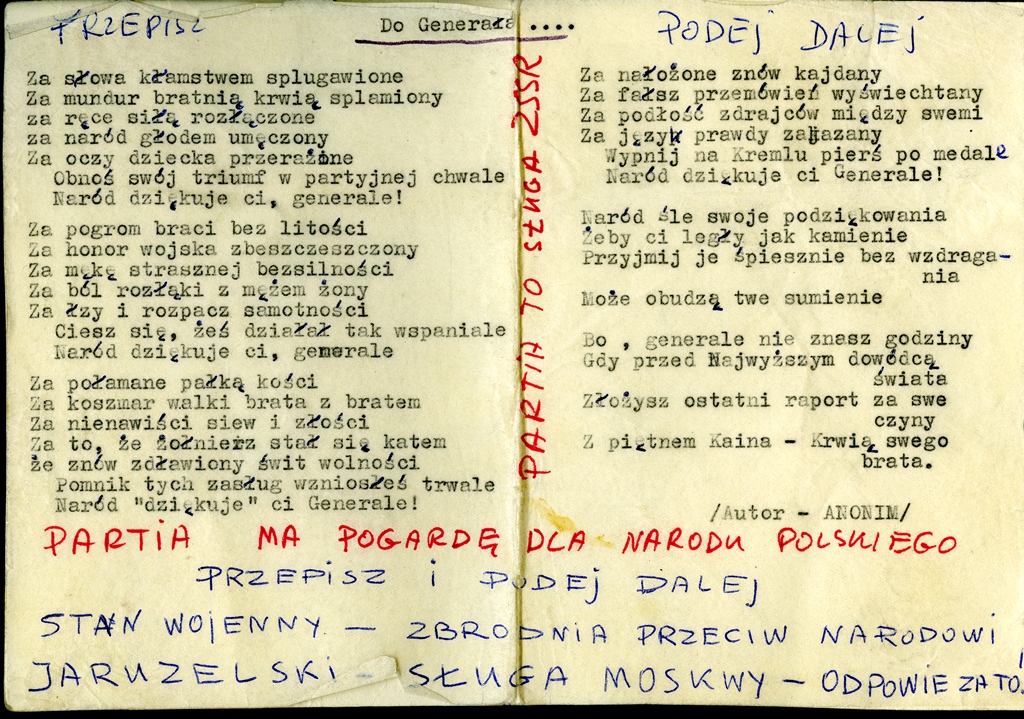 PRZEPISZ
Do Generała ....
PODEJ DALEJ
Za słowa kłamstwem splugawione
Za mundur bratnią krwią splamiony
za ręce siłą rozłączone
za naród głodem umęczony
Za oczy dziecka przerażone
Obnoś swój triumf w partyjnej chwale
Naród dziękuje ci, generale!
Za pogrom braci bez litości
Za honor wojska zbeszczeszczony
Za mękę strasznej bezsilności
Za ból rozłąki z mężem żony
Za łzy i rozpacz samotności
Ciesz się, żeś działał tak wspaniale
Naród dziękuje ci, generale
Za połamane pałką kości
Za koszmar walki brata z bratem
Za nienawiści siew i złości
Za to, że żołnierz stał się katem
że znów zdławiony świt wolności
Pomnik tych zasług wzniosłeś trwale
Naród "dziękuje" ci Generale!
PARTIA TO SŁUGA ZSSR
Za nałożone znów kajdany
Za fałsz przemówień wyświechtany
Za podłość zdrajców między swemi
Za język prawdy zakazany
Wypnij na Kremlu pierś po medale
Naród dziękuje ci Generale!
Naród śle swoje podziękowania
Żeby ci legły jak kamienie
Przyjmij je śpiesznie bez wzdraga-
nia
Może obudzą twe sumienie
Bo , generale nie znasz godziny
Gdy przed Najwyższym dowódcą
świata
Złożysz ostatni raport za swe
czyny
Z piętnem Kaina - Krwią swego
brata.
/Autor - ANONIM/
PARTIA MA POGARDĘ DLA NARODU POLSKIEGO
PRZEPISZ i PODEJ DALEJ
STAN WOJENNY - ZBRODNIA PRZECIW NARODOWI
JARUZELSKI - SŁUGA MOSKWY - ODPOWIE ZA TO!